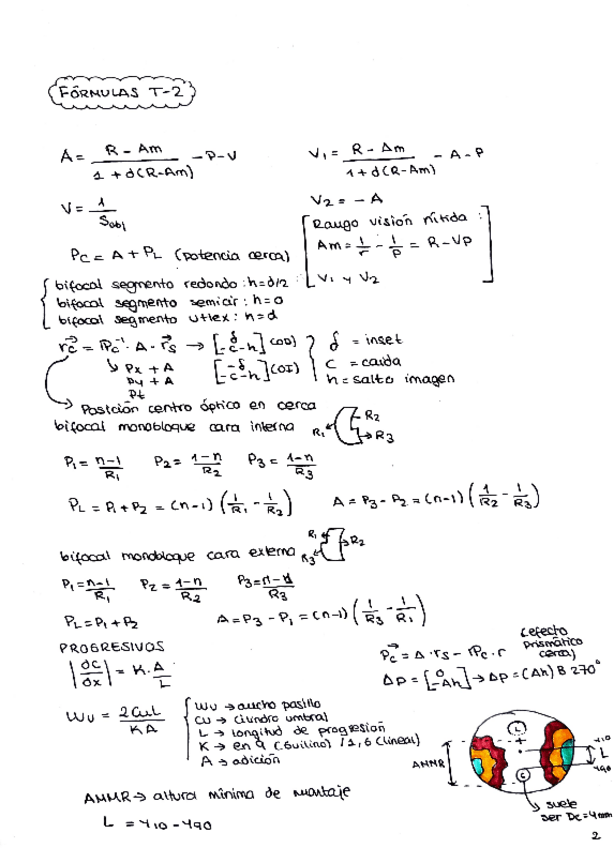 FÓRMULAS T-2
A = (R - Am) / (1 + d(R-Am)) - P - V
V₁ = (R - Am) / (1 + d(R-Am)) - A - P
V = 1 / Sobj
V₂ = - A
Pc = A + PL (potencia cerca)
Rango visión nítida :
Am = 1/r - 1/p = R - VP
V₁ y V₂
bifocal segmento redondo : h = d/2
bifocal segmento semicir : h = 0
bifocal segmento utlex : h = d
rc = Pc⁻¹ · A · rs → [δ / -c-h] (OD)
[-δ / -c-h] (OI)
δ = inset
c = caída
h = salto imagen
Px + A
Py + A
Pt
Posición centro óptico en cerca
bifocal monobloque cara interna
R₁ R₂ R₃
P₁ = (n-1)/R₁ P₂ = (1-n)/R₂ P₃ = (1-n)/R₃
PL = P₁ + P₂ = (n-1) (1/R₁ - 1/R₂) A = P₃ - P₂ = (n-1) (1/R₂ - 1/R₃)
bifocal monobloque cara externa
R₁ R₂ R₃
P₁ = (n-1)/R₁ P₂ = (1-n)/R₂
PL = P₁ + P₂ A = P₃ - P₁ = (n-1) (1/R₃ - 1/R₁)
PROGRESIVOS
|∂C/∂x| = K · A/L
(efecto
prismático
cerca)
Pc = Δ · rs - Pc · r
ΔP = [0 / -Ah] → ΔP = (Ah) B 270°
Wu = 2CuL / KA
Wu → ancho pasillo
Cu → cilindro umbral
L → longitud de progresión
A → adición
AMMR
L
C
Y10
L
Y90
AMMR → altura mínima de montaje
L = Y10 - Y90
suele
ser Dc = 4mm
2